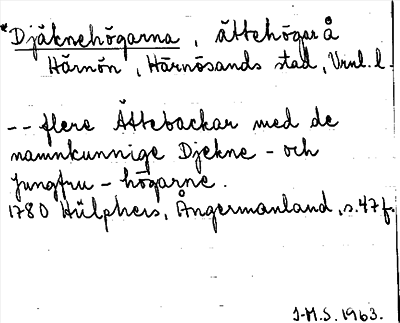 *Djäknehögarna, ättehögar å
Härnön, Härnösands stad, Vrnl. l.
-- flere Ättebackar med de
namnkunnige Djekne - och
Jungfru - högarne.
1780 Hülphers, Ångermanland, s. 47 f.
J-M.S. 1963.